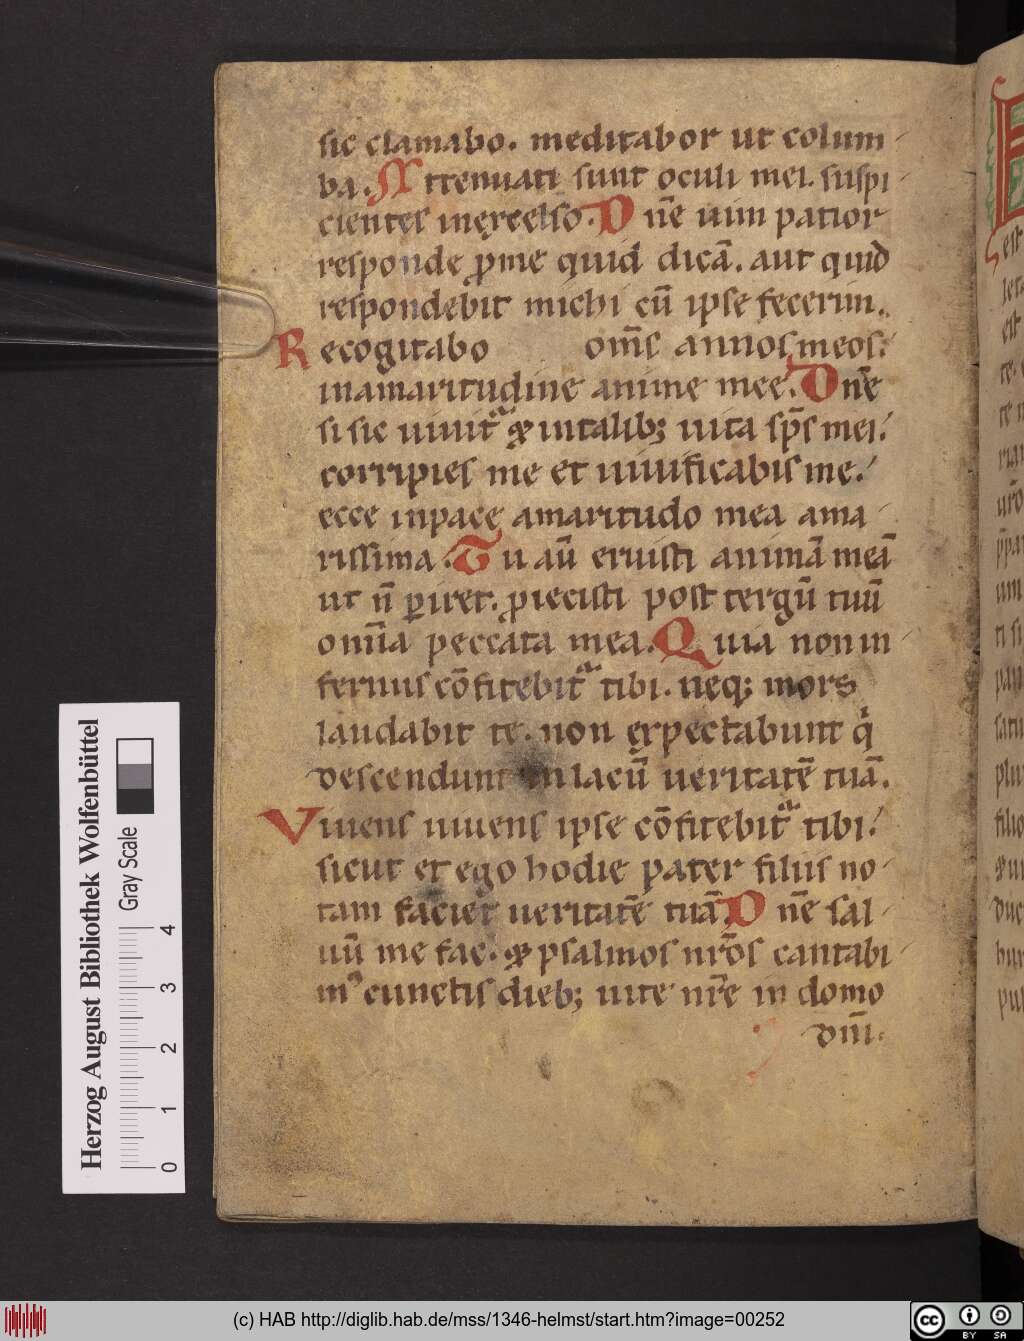 sic clamabo. meditabor ut colum-
ba. Attenuati sunt oculi mei. suspi-
cientes inexcelso. Dn̄e uim patior
responde ꝓme quid dicā. aut quid
respondebit michi cū ipse fecerim.
Recogitabo om̄s annos meos.
inamaritudine anime mee. Dn̄e
si sic uiuit᷑ ⁊ intalib; uita sp̄s mei.
corripies me et uiuificabis me.
ecce inpace amaritudo mea ama-
rissima. Tu aū eruisti animā meā
ut n̄ ꝑiret. ꝓiecisti post tergū tuū
omīa peccata mea. Quia non in-
fernus cōfitebit᷑ tibi. neq; mors
laudabit te. non expectabunt q
descendunt in lacū ueritatē tuā.
Viuens uiuens ipse cōfitebit᷑ tibi.
sicut et ego hodie pater filiis no-
tam faciet ueritatē tuā. Dn̄e sal-
uū me fac. ⁊ psalmos nr̄os cantabi-
m᷒ cunctis dieb; uite nr̄e in domo
dn̄i.
est
est
Herzog August Bibliothek Wolfenbüttel
Gray Scale
0 1 2 3 4
(c) HAB http://diglib.hab.de/mss/1346-helmst/start.htm?image=00252
cc BY SA